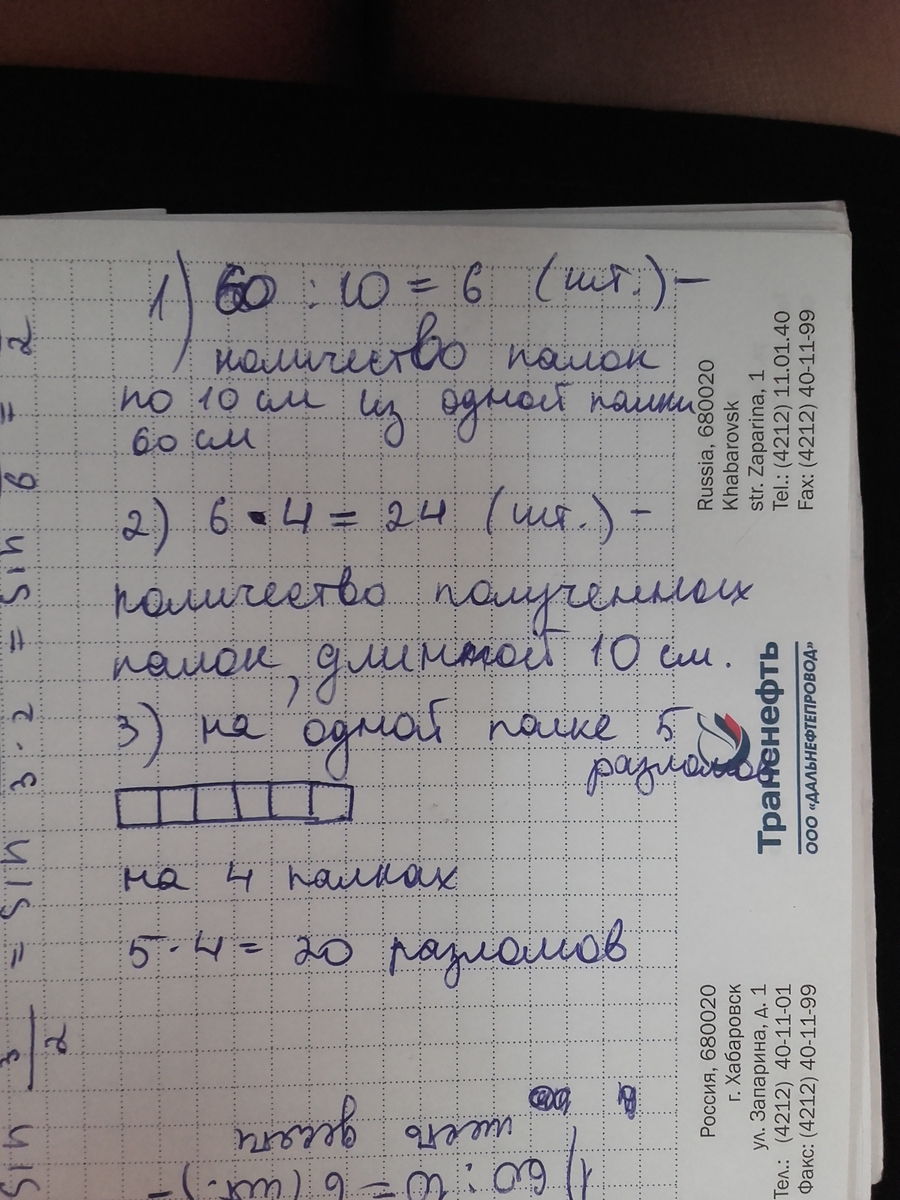 1) 60 : 10 = 6 (шт.) –
количество палок
по 10 см из одной палки
60 см
2) 6 · 4 = 24 (шт.) –
количество полученных
палок, длинной 10 см.
3) на одной палке 5
разломов
на 4 палках
5 · 4 = 20 разломов
Russia, 680020
Khabarovsk
str. Zaparina, 1
Tel.: (4212) 11.01.40
Fax: (4212) 40-11-99
Транснефть
ООО «ДАЛЬНЕФТЕПРОВОД»
Россия, 680020
г. Хабаровск
ул. Запарина, д. 1
Тел.: (4212) 40-11-01
Факс: (4212) 40-11-99
шесть десять
1) 60 : 10 = 6 (шт.) –